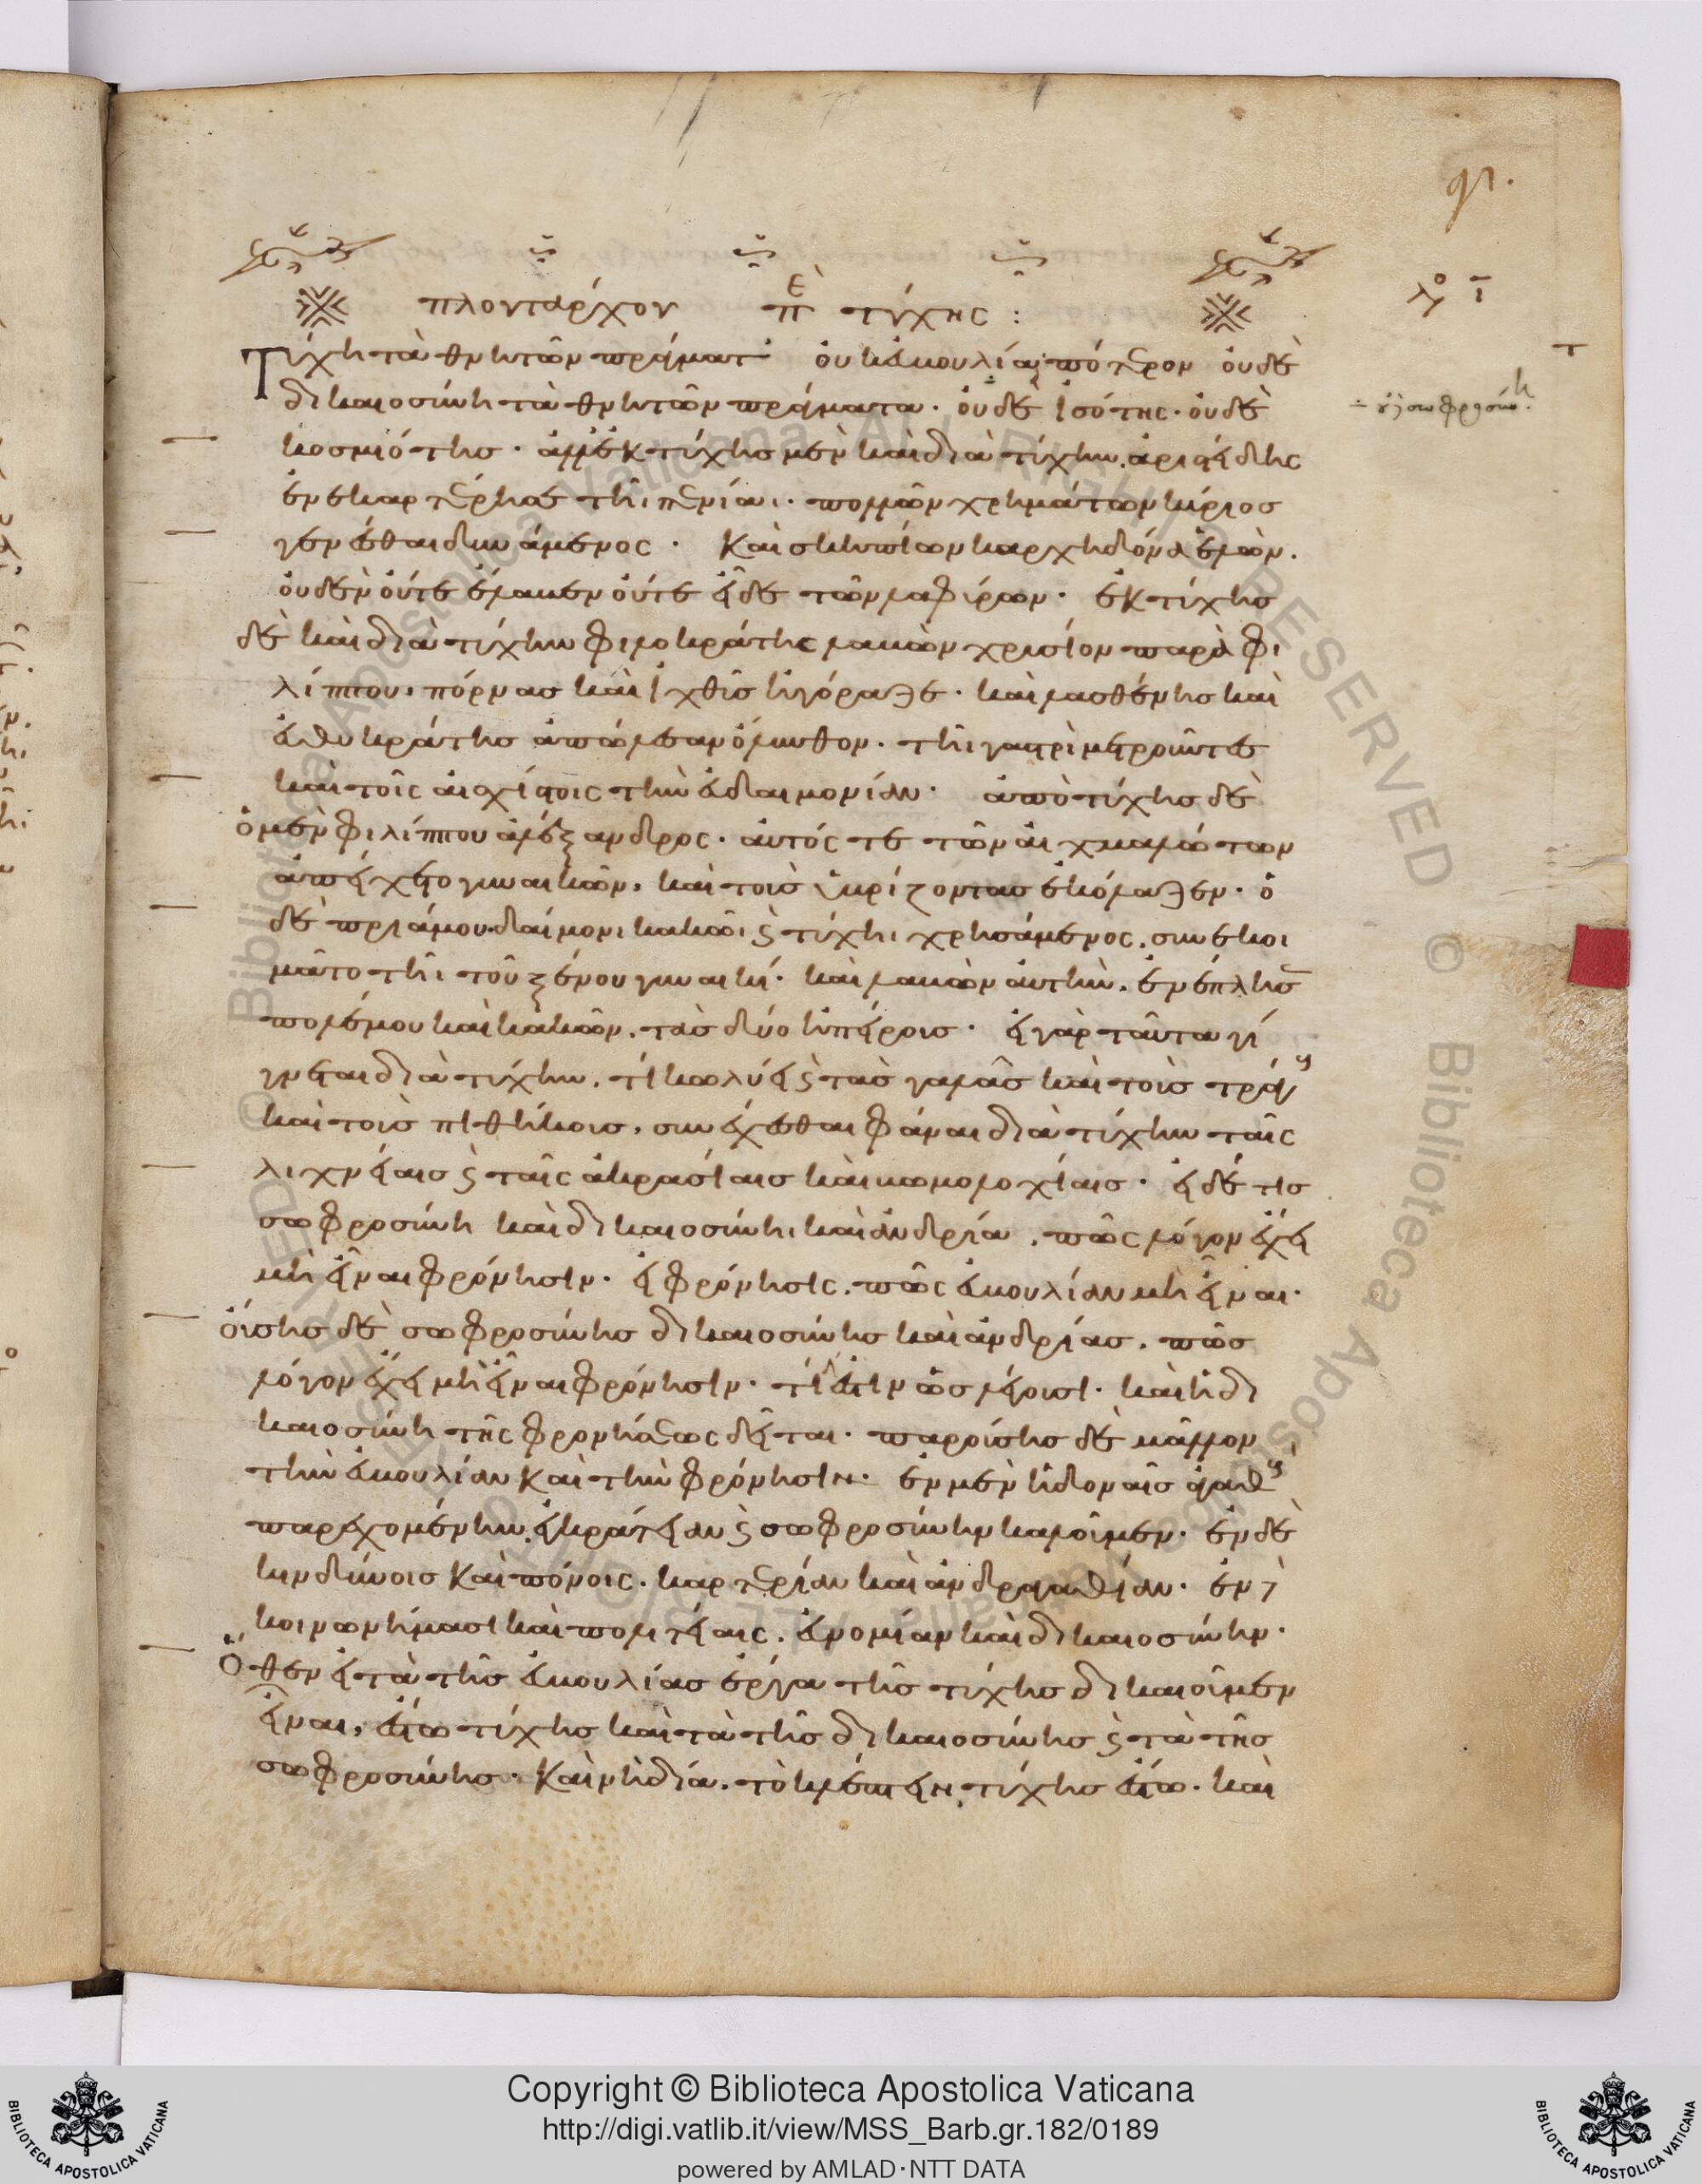 91.
πλουτάρχου πε τύχης :
λο ι
Τύχη τὰ θνητῶν πράγματ' οὐκ εὐβουλία· πότερον οὐδὲ
δικαιοσύνη τὰ θνητῶν πράγματα· οὐδὲ ἰσότης· οὐδὲ
κοσμιότης· ἀλλ' ἐκ τύχης μὲν καὶ διὰ τύχην ἀριστείδης
ἐνεκαρτέρησε τῆι πενίαι· πολλῶν χρημάτων κύριος
γενέσθαι δυνάμενος· Καὶ σκηπίων καρχηδόνα ἑλὼν.
οὐδὲν οὔτε ἔλαβεν οὔτε εἶδε τῶν λαφύρων· ἐκ τύχης
δὲ καὶ διὰ τύχην φιλοκράτης λαβὼν χρυσίον παρὰ φι
λίππου, πόρνας καὶ ἰχθῦς ἠγόραζε· καὶ λασθένης καὶ
εὐθυκράτης ἀπώλεσαν ὄλυνθον· τῆι γαστρὶ μετροῦντες
καὶ τοῖς αἰσχίστοις τὴν εὐδαιμονίαν· ἀπὸ τύχης δὲ
ὁ μὲν φιλίππου ἀλέξανδρος· αὐτός τε τῶν αἰχμαλώτων
ἀπείχετο γυναικῶν, καὶ τοὺς ὑβρίζοντας ἐκόλαζεν· ὁ
δὲ πριάμου δαίμονι κακῶι ϛ τύχηι χρησάμενος, συνεκοι
μᾶτο τῆι τοῦ ξένου γυναικί· καὶ λαβὼν αὐτὴν, ἐνέπλησ
πολέμου καὶ κακῶν, τὰς δύο ἠπείρους· εἰ γὰρ ταῦτα γί
γνεται διὰ τύχην, τί κωλύει ϛ τὰς γαλᾶς καὶ τοὺς τράγ
καὶ τοὺς πιθήκους, συνέχεσθαι φάναι διὰ τύχην ταῖς
λιχνείαις ϛ ταῖς ἀκρασίαις καὶ βωμολοχίαις· εἰ δέ τις
σωφροσύνη καὶ δικαιοσύνη, καὶ ἀνδρία, πῶς λόγον ἔχει
μὴ εἶναι φρόνησιν· εἰ φρόνησις, πῶς εὐβουλίαν μὴ εἶναι·
οὔσης δὲ σωφροσύνης δικαιοσύνης καὶ ἀνδρίας, πῶς
λόγον ἔχει μὴ εἶναι φρόνησιν· τί ἐστιν ὥς λέγουσι· καὶ ἡ δι
καιοσύνη τῆς φρονήσεως δεῖται· παρούσης δὲ μᾶλλον
τὴν εὐβουλίαν καὶ τὴν φρόνησιν· ἐν μὲν ἡδοναῖς ἀγαθ
παρεχομένην, ἐγκράτειαν ϛ σωφροσύνην καλοῦμεν· ἐν δὲ
κινδύνοις καὶ πόνοις, καρτερίαν καὶ ἀνδραγαθίαν· ἐν
κοινωνήμασι καὶ πολιτείαις, εὐνομίαν καὶ δικαιοσύνην·
Ὅθεν εἰ τὰ τῆς εὐβουλίας ἔργα τῆς τύχης δικαιοῦμεν
εἶναι, ἔστω τύχης καὶ τὰ τῆς δικαιοσύνης ϛ τὰ τῆς
σωφροσύνης· Καὶ νὴ δία, τὸ κλέπτειν, τύχης ἔστω· καὶ
Copyright © Biblioteca Apostolica Vaticana
http://digi.vatlib.it/view/MSS_Barb.gr.182/0189
powered by AMLAD·NTT DATA
BIBLIOTECA APOSTOLICA VATICANA
BIBLIOTECA APOSTOLICA VATICANA